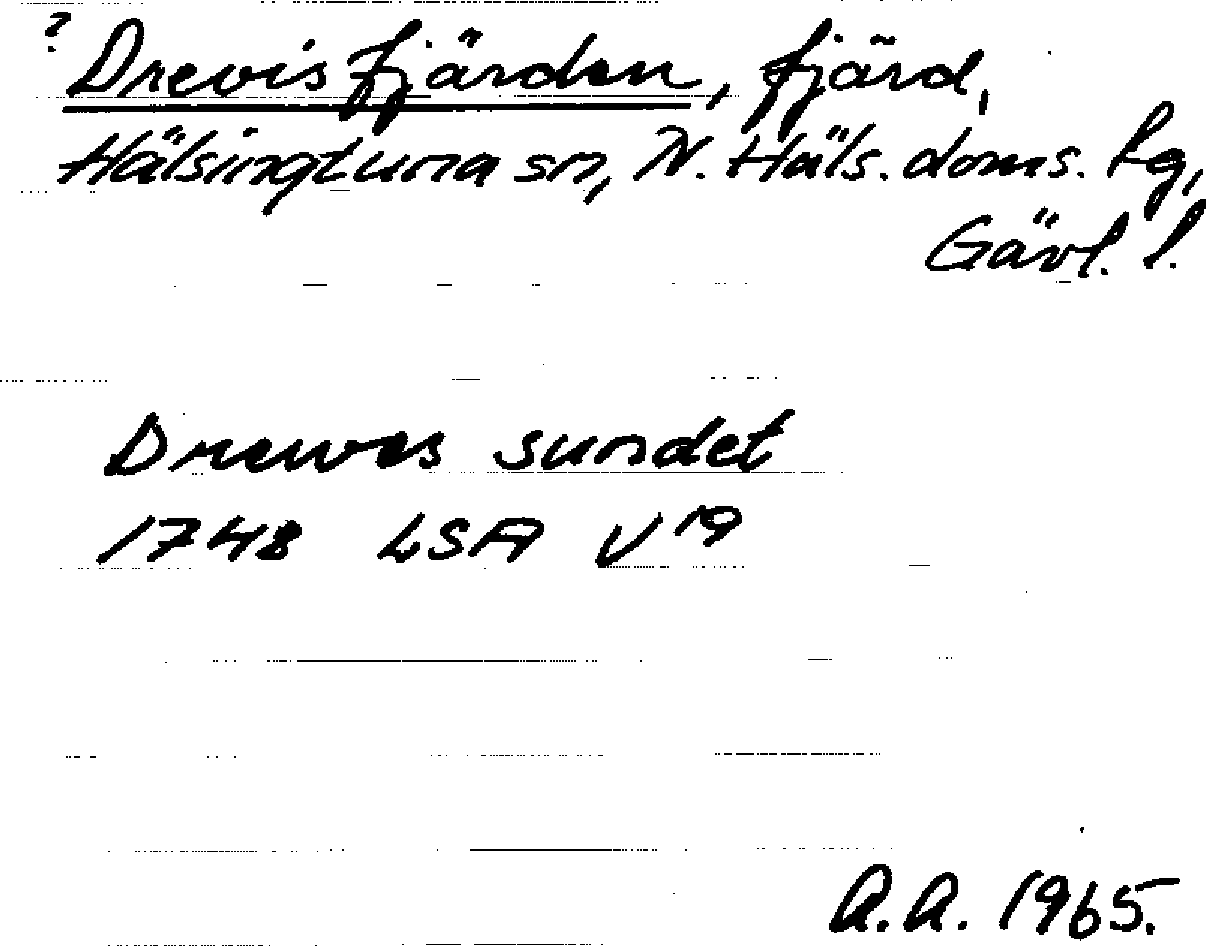 ? Drevisfjärden, fjärd,
Hälsingtuna sn, N. Häls. doms. lg,
Gävl. l.
Drewes sundet
1748 LSA V¹⁹
A.A. 1965.